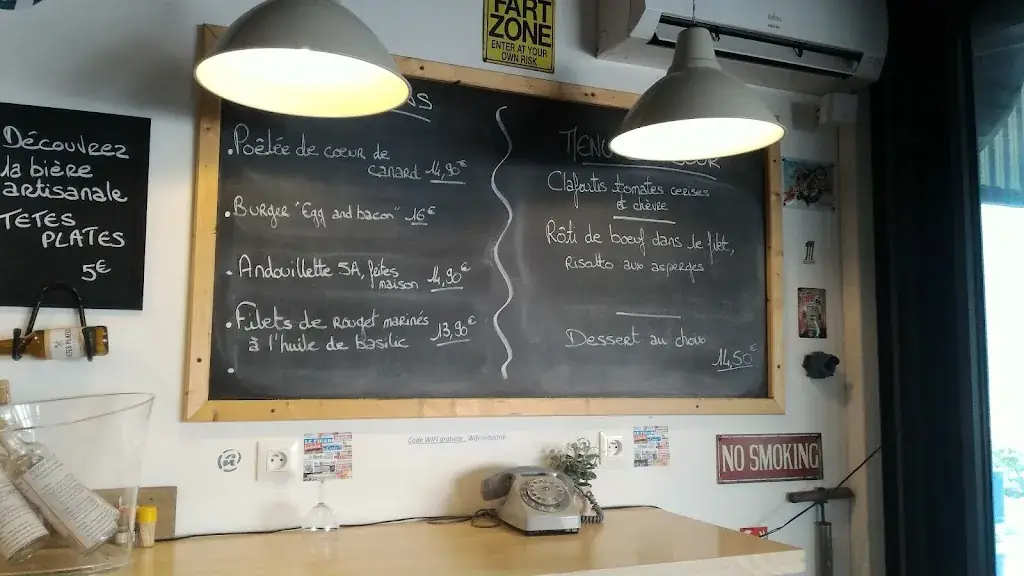 FART
ZONE
ENTER AT YOUR
OWN RISK
Découvrez
la bière
artisanale
TETES
PLATES
5€
. Poêlée de coeur de
canard 14,90€
. Burger "Egg and bacon" 16€
. Andouillette 5A, frites
maison 14,90€
. Filets de rouget marinés
à l'huile de basilic 13,90€
.
MENU
Clafoutis tomates cerises
et chèvre
Rôti de boeuf dans le filet,
Risotto aux asperges
Dessert au choix
14,50€
Code WIFI gratuite : Wifi-Industrie
NO SMOKING